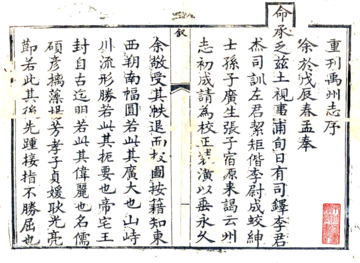 重刊禹州志序
余於戊辰春孟奉
命承乏兹土視事甫旬日有司鐸李君
杰司訓左君絜矩偕李尉成蛟紳
士孫子廣生張子宿原來謁云州
志初成請為校正裝潢以垂永久
叙
余敬受其帙退而按圖按籍知東
西朔南幅圓若此其廣大也山峙
川流形勝若此其扼要也帝宅王
封自古迄明若此其偉麗也名儒
碩彥摛藻掞芳孝子貞媛耿光亮
節若此其後先踵接指不勝屈也